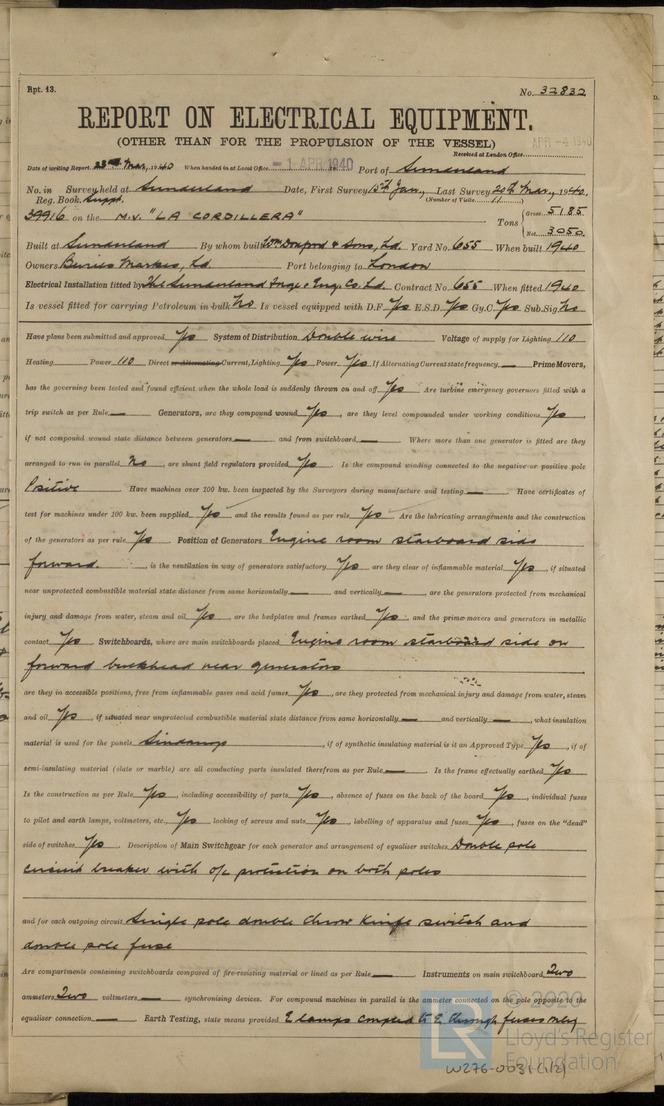 Rpt. 13. No. 32832
REPORT ON ELECTRICAL EQUIPMENT.
(OTHER THAN FOR THE PROPULSION OF THE VESSEL)
APR -4 1940
Received at London Office
Date of writing Report 23rd Mar, 1940 When handed in at Local Office -1 APR 1940 Port of Sunderland
No. in Survey held at Sunderland Date, First Survey 15th Jan, Last Survey 20th Mar, 1940
Reg. Book. Suppt. (Number of Visits 11)
39916 on the M.V. "LA CORDILLERA" Tons { Gross 5185
Net 3050
Built at Sunderland By whom built Wm Doxford & Sons, Ld. Yard No. 655 When built 1940
Owners Buries Markes, Ld. Port belonging to London
Electrical Installation fitted by The Sunderland Forge & Eng. Co. Ld. Contract No. 655 When fitted 1940
Is vessel fitted for carrying Petroleum in bulk No Is vessel equipped with D.F. Yes E.S.D. Yes Gy.C. Yes Sub.Sig. No
Have plans been submitted and approved Yes System of Distribution Double wire Voltage of supply for Lighting 110
Heating Power 110 Direct or Alternating Current, Lighting Yes Power Yes If Alternating Current state frequency — Prime Movers,
has the governing been tested and found efficient when the whole load is suddenly thrown on and off Yes Are turbine emergency governors fitted with a
trip switch as per Rule — Generators, are they compound wound Yes, are they level compounded under working conditions Yes,
if not compound wound state distance between generators — and from switchboard — Where more than one generator is fitted are they
arranged to run in parallel No, are shunt field regulators provided Yes Is the compound winding connected to the negative or positive pole
Positive Have machines over 100 kw. been inspected by the Surveyors during manufacture and testing — Have certificates of
test for machines under 100 kw. been supplied Yes and the results found as per rule Yes Are the lubricating arrangements and the construction
of the generators as per rule Yes Position of Generators Engine room starboard side
forward. is the ventilation in way of generators satisfactory Yes are they clear of inflammable material Yes, if situated
near unprotected combustible material state distance from same horizontally — and vertically —, are the generators protected from mechanical
injury and damage from water, steam and oil Yes, are the bedplates and frames earthed Yes and the prime movers and generators in metallic
contact Yes Switchboards, where are main switchboards placed Engine room starboard side on
forward bulkhead near generators
are they in accessible positions, free from inflammable gases and acid fumes Yes, are they protected from mechanical injury and damage from water, steam
and oil Yes, if situated near unprotected combustible material state distance from same horizontally — and vertically —, what insulation
material is used for the panels Sindanyo, if of synthetic insulating material is it an Approved Type Yes, if of
semi-insulating material (slate or marble) are all conducting parts insulated therefrom as per Rule — Is the frame effectually earthed Yes
Is the construction as per Rule Yes, including accessibility of parts Yes, absence of fuses on the back of the board Yes, individual fuses
to pilot and earth lamps, voltmeters, etc., Yes locking of screws and nuts Yes, labelling of apparatus and fuses Yes, fuses on the "dead"
side of switches Yes. Description of Main Switchgear for each generator and arrangement of equaliser switches Double pole
circuit breaker with o/c protection on both poles
and for each outgoing circuit Single pole double throw knife switch and
double pole fuse
Are compartments containing switchboards composed of fire-resisting material or lined as per Rule — Instruments on main switchboard Two
ammeters Two voltmeters — synchronising devices. For compound machines in parallel is the ammeter connected on the pole opposite to the
equaliser connection — Earth Testing, state means provided E lamps coupled to E through fuses
© 2020
Lloyd's Register
Foundation
LR
W276-0031 (1/2)